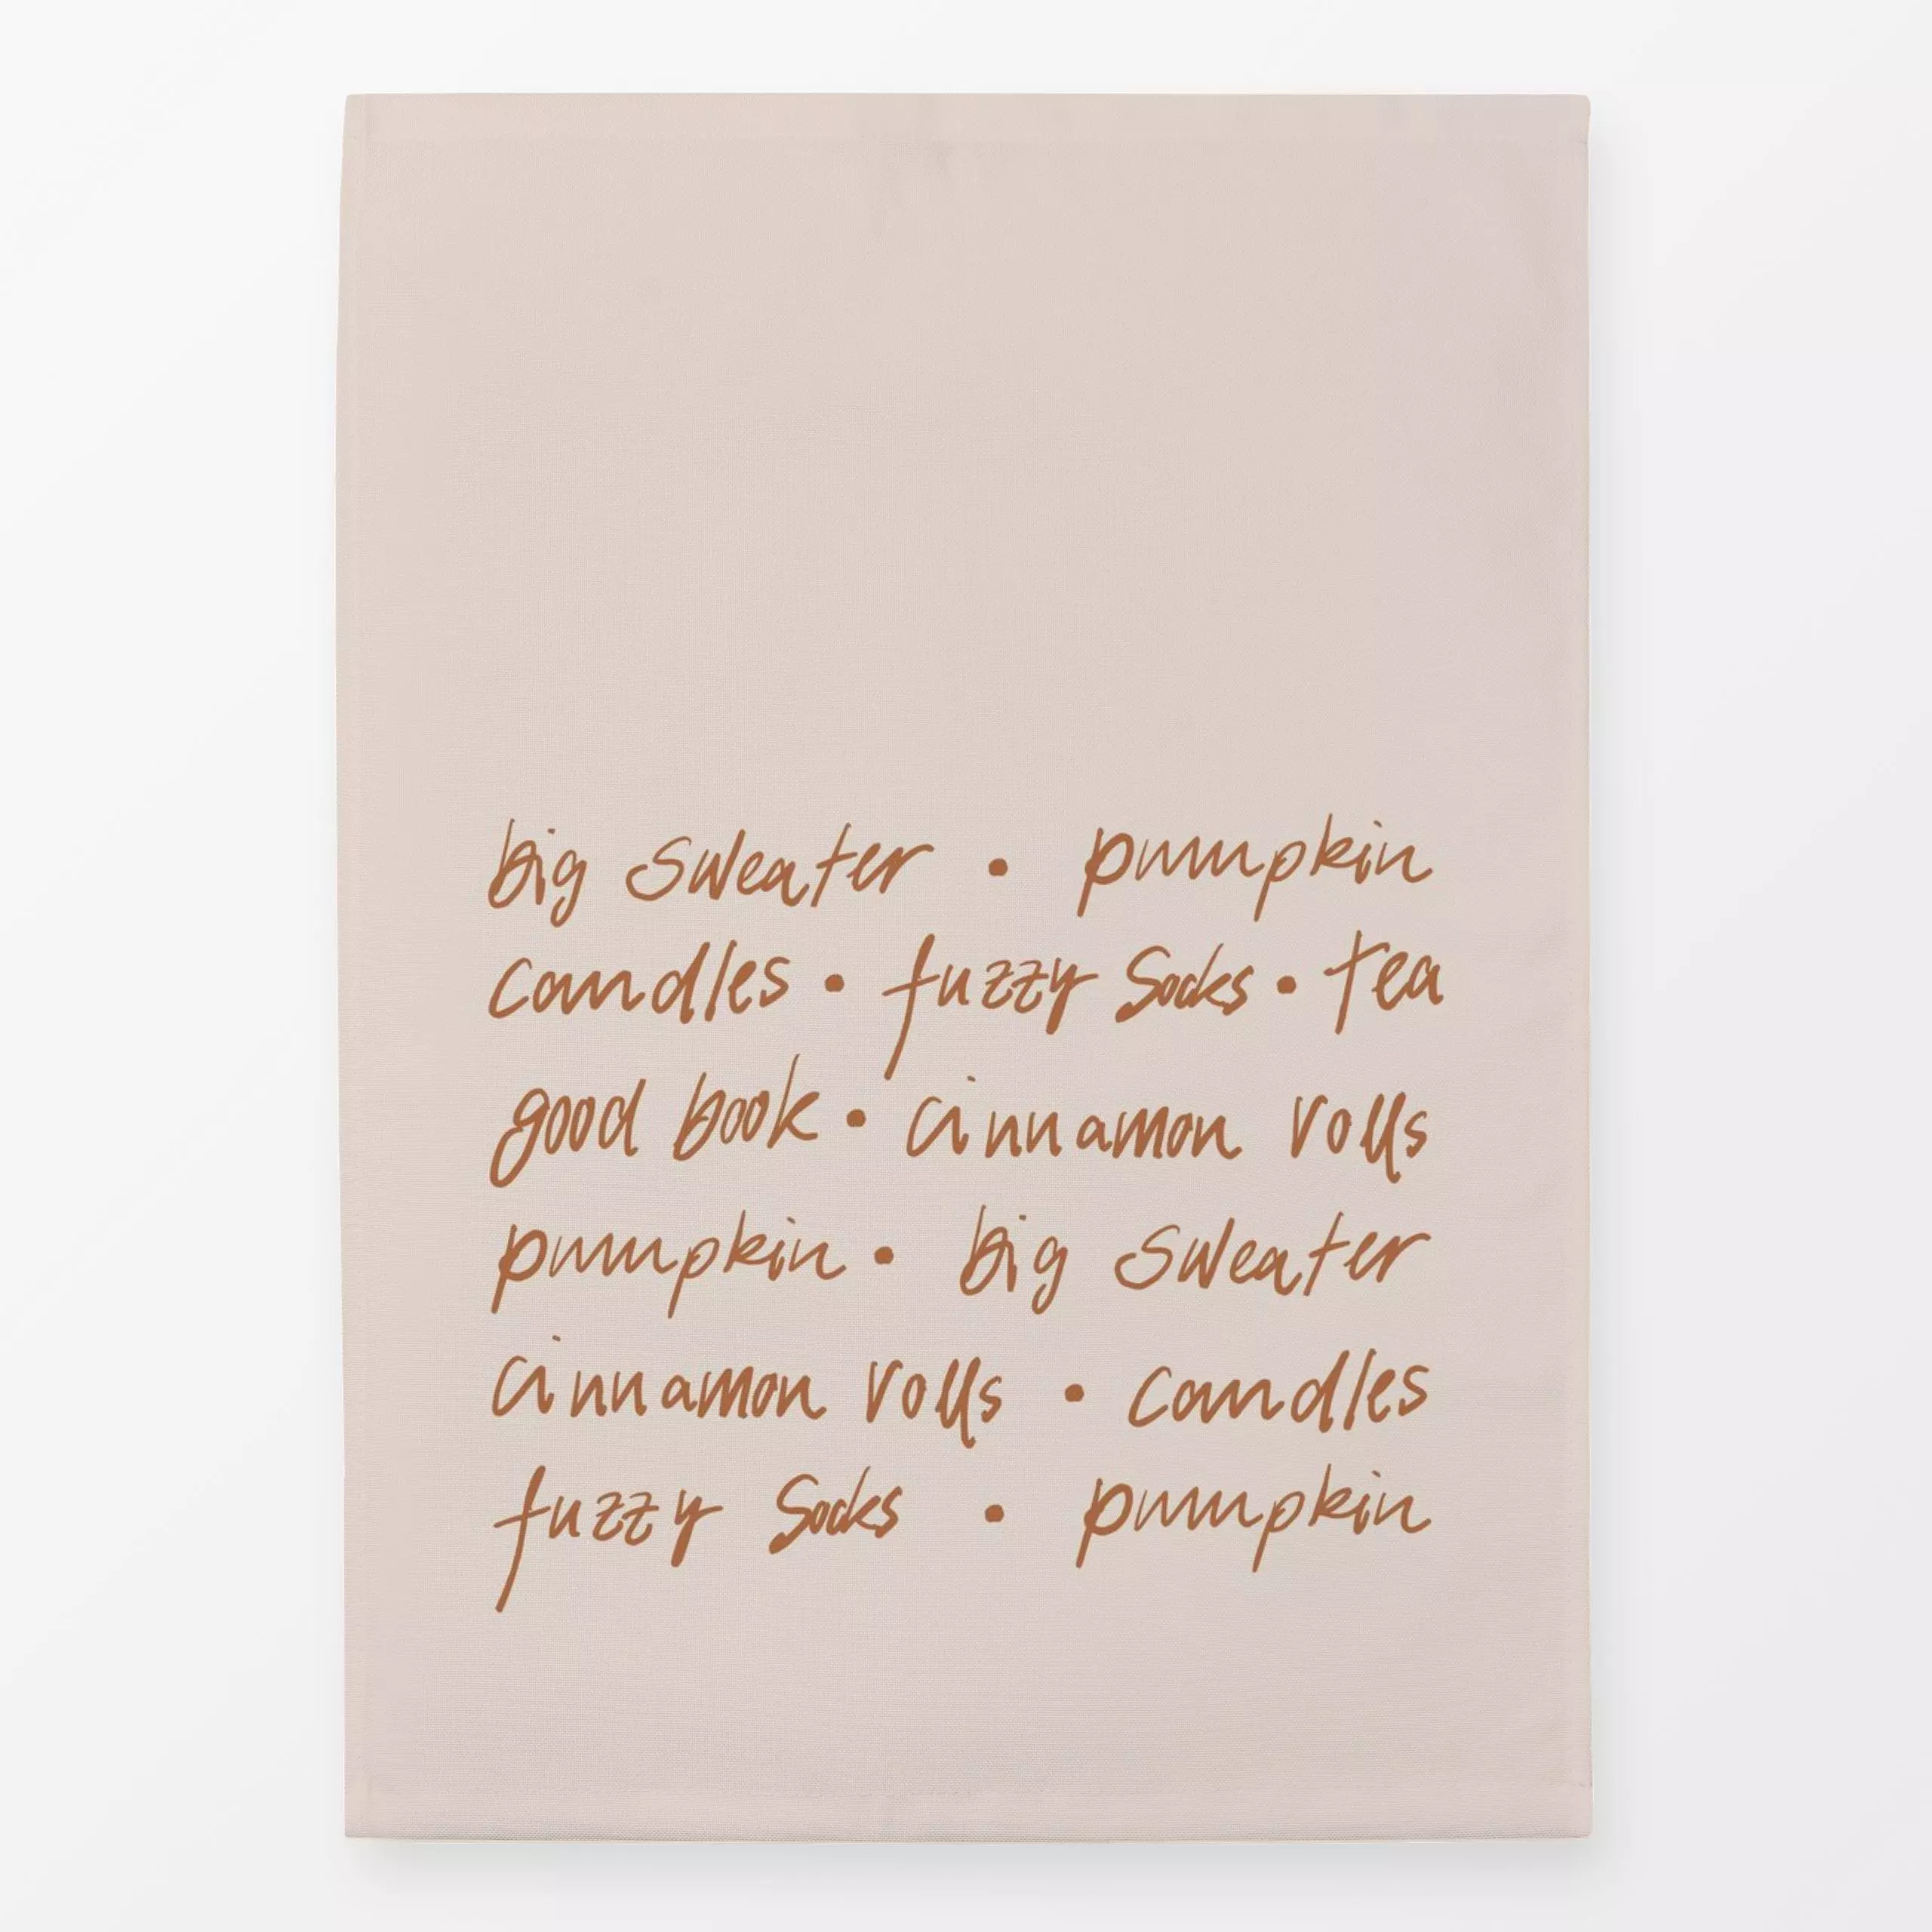 big sweater • pumpkin
candles • fuzzy socks • tea
good book • cinnamon rolls
pumpkin • big sweater
cinnamon rolls • candles
fuzzy socks • pumpkin